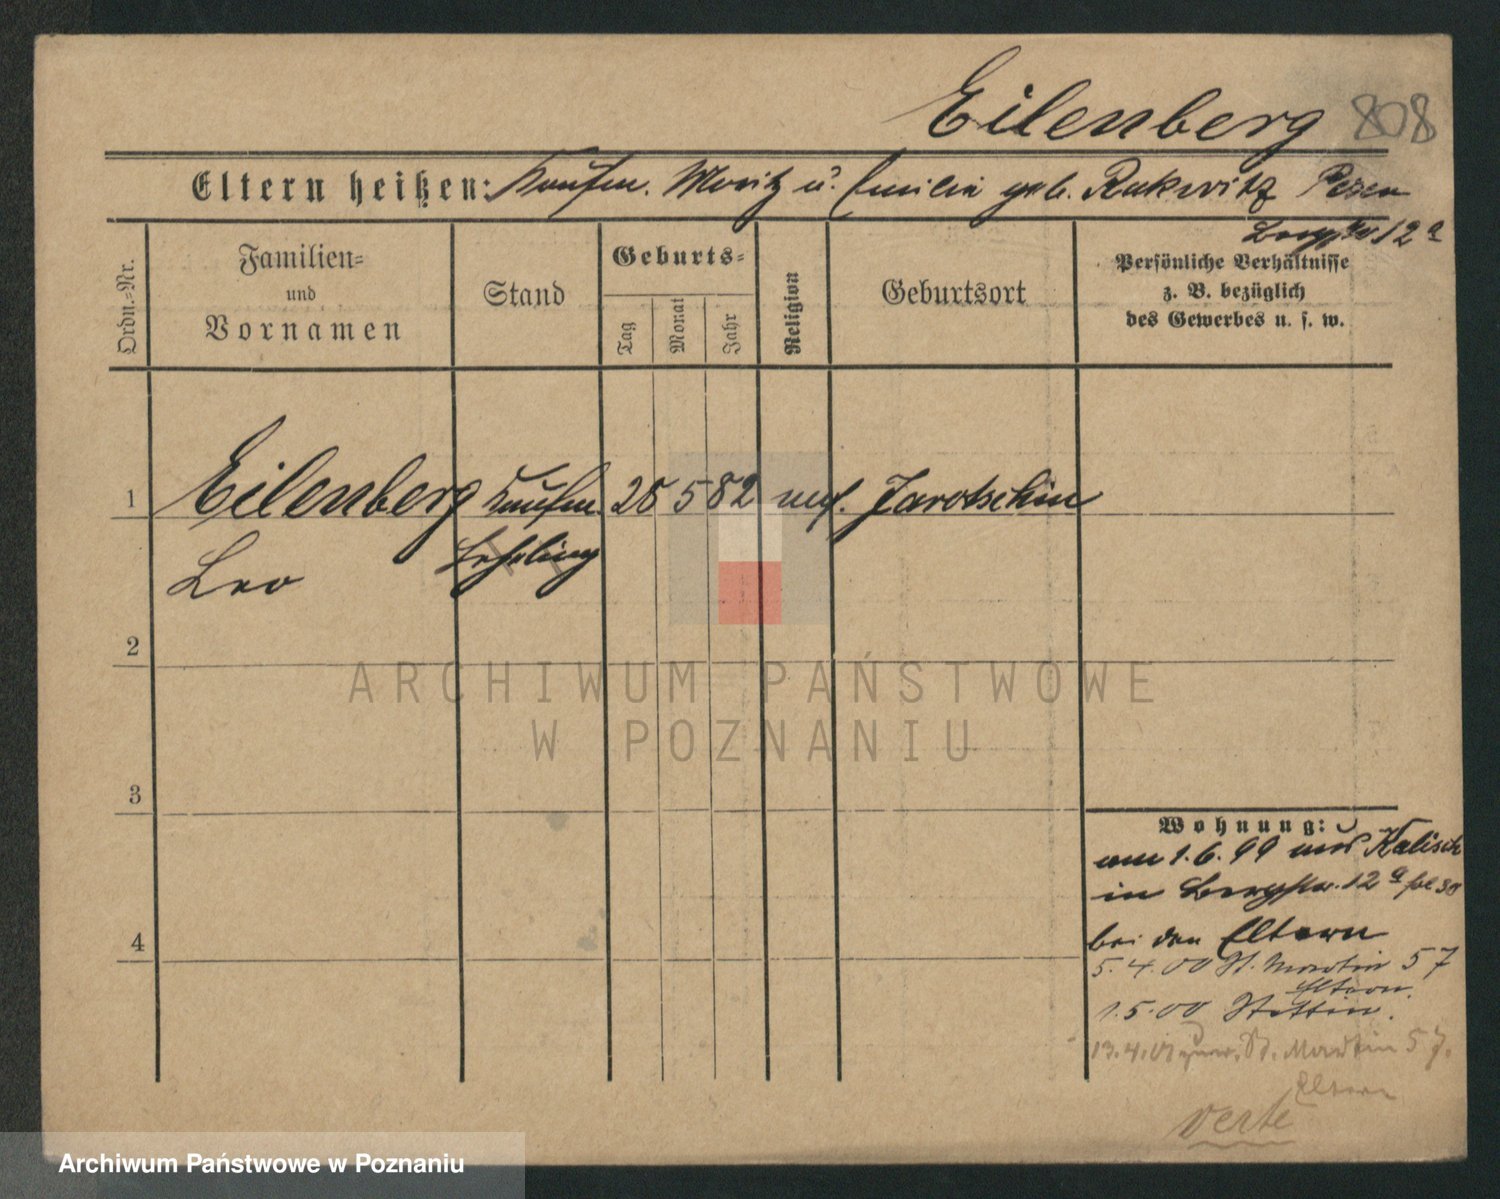 Eilenberg 808
Eltern heißen: Kaufm. Moritz u. Emilie geb. Rakwitz Posen
Bergstr 12 a
Ordn.=Nr.
Familien=
und
Vornamen
Stand
Geburts=
Tag
Monat
Jahr
Religion
Geburtsort
Persönliche Verhältnisse
z. B. bezüglich
des Gewerbes u. s. w.
1 Eilenberg Kaufm. 28 5 82 mos. Jarotschin
Leo Lehrling
2
3
4
Wohnung:
am 1.6.99 aus Kalisch
in Bergstr. 12 a
bei den Eltern
5.4.00 St. Martin 57
Eltern.
1.5.00 Stettin.
13.4.01 St. Martin 57.
Eltern
verte
ARCHIWUM PAŃSTWOWE
W POZNANIU
Archiwum Państwowe w Poznaniu